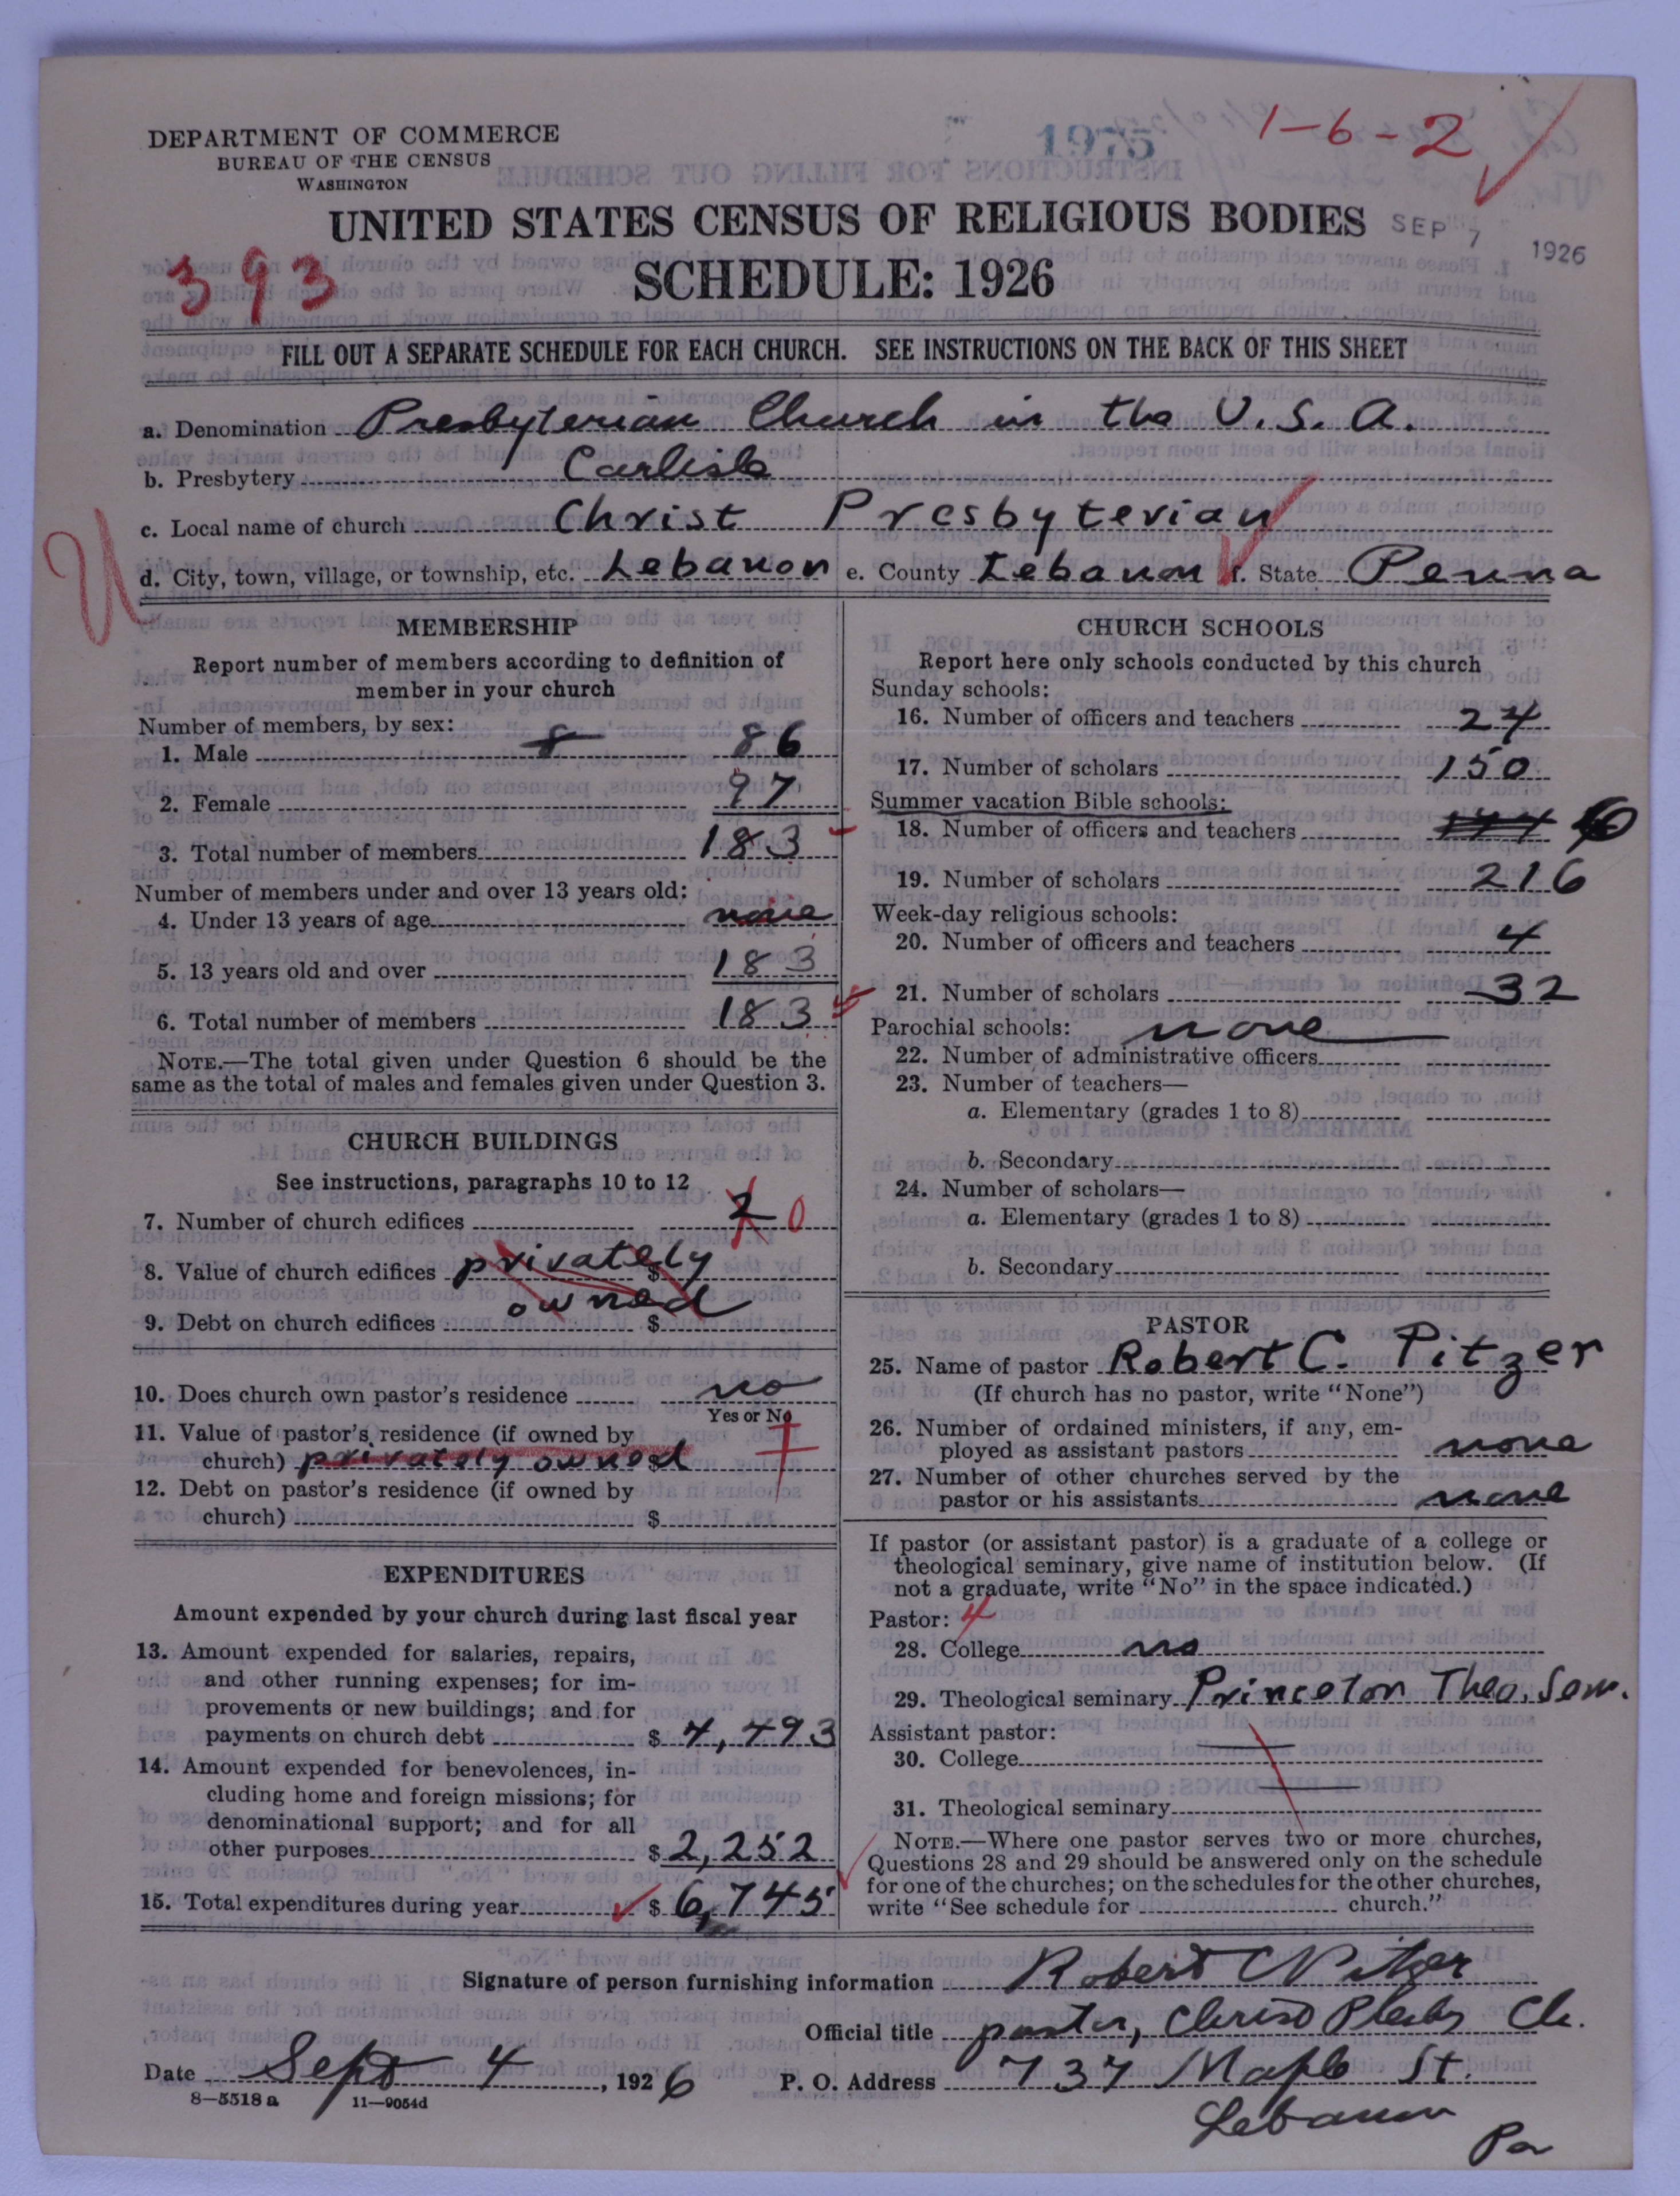 DEPARTMENT OF COMMERCE
BUREAU OF THE CENSUS
WASHINGTON
1975
1-6-2
UNITED STATES CENSUS OF RELIGIOUS BODIES
SEP 7 1926
393
SCHEDULE: 1926
FILL OUT A SEPARATE SCHEDULE FOR EACH CHURCH. SEE INSTRUCTIONS ON THE BACK OF THIS SHEET
a. Denomination Presbyterian Church in the U.S.A.
b. Presbytery Carlisle
c. Local name of church Christ Presbyterian
U
d. City, town, village, or township, etc. Lebanon e. County Lebanon f. State Penna
MEMBERSHIP
Report number of members according to definition of
member in your church
Number of members, by sex:
1. Male 8 86
2. Female 97
3. Total number of members 183
Number of members under and over 13 years old:
4. Under 13 years of age none
5. 13 years old and over 183
6. Total number of members 183
NOTE.—The total given under Question 6 should be the
same as the total of males and females given under Question 3.
CHURCH BUILDINGS
See instructions, paragraphs 10 to 12
7. Number of church edifices 2 0
8. Value of church edifices privately $
owned
9. Debt on church edifices $
10. Does church own pastor's residence no
Yes or No
11. Value of pastor's residence (if owned by
church) privately owned $
12. Debt on pastor's residence (if owned by
church) $
EXPENDITURES
Amount expended by your church during last fiscal year
13. Amount expended for salaries, repairs,
and other running expenses; for im-
provements or new buildings; and for
payments on church debt $ 4,493
14. Amount expended for benevolences, in-
cluding home and foreign missions; for
denominational support; and for all
other purposes $ 2,252
15. Total expenditures during year $ 6,745
CHURCH SCHOOLS
Report here only schools conducted by this church
Sunday schools:
16. Number of officers and teachers 24
17. Number of scholars 150
Summer vacation Bible schools:
18. Number of officers and teachers
19. Number of scholars 216
Week-day religious schools:
20. Number of officers and teachers 4
21. Number of scholars 32
Parochial schools: none
22. Number of administrative officers
23. Number of teachers—
a. Elementary (grades 1 to 8)
b. Secondary
24. Number of scholars—
a. Elementary (grades 1 to 8)
b. Secondary
PASTOR
25. Name of pastor Robert C. Pitzer
(If church has no pastor, write "None")
26. Number of ordained ministers, if any, em-
ployed as assistant pastors none
27. Number of other churches served by the
pastor or his assistants none
If pastor (or assistant pastor) is a graduate of a college or
theological seminary, give name of institution below. (If
not a graduate, write "No" in the space indicated.)
Pastor: 4
28. College no
29. Theological seminary Princeton Theo. Sem.
Assistant pastor:
30. College
31. Theological seminary
NOTE.—Where one pastor serves two or more churches,
Questions 28 and 29 should be answered only on the schedule
for one of the churches; on the schedules for the other churches,
write "See schedule for church."
Signature of person furnishing information Robert C Pitzer
Official title pastor, Christ Presby Ch.
Date Sept 4, 1926 P. O. Address 737 Maple St.
8—5518a 11—9054d
Lebanon
Pa